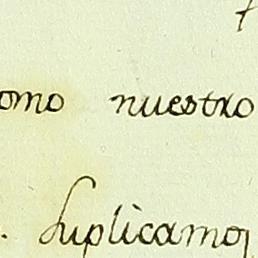 omo nuestro
. Suplicamos